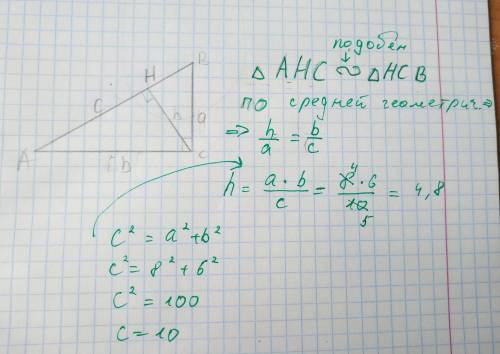 B
H
C
h
a
A
b
C
подобен
△ AHC ∾ △HCB
по средней геометрич. ⇒
⇒ h/a = b/c
h = a·b/c = 8⁴·6/10₅ = 4,8
c² = a²+b²
c² = 8² + 6²
c² = 100
c = 10